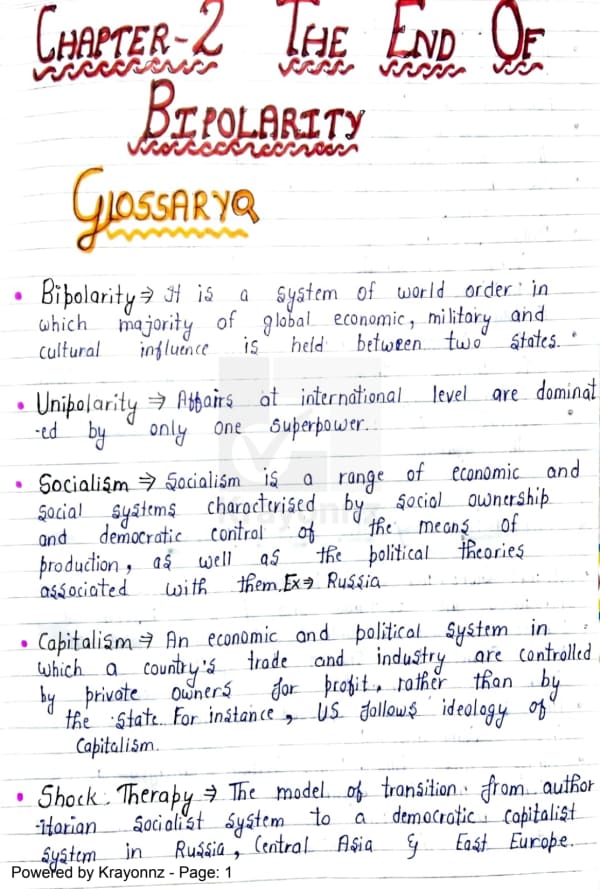 CHAPTER-2 THE END OF
BIPOLARITY
GLOSSARY
• Bipolarity ⇒ It is a system of world order in
which majority of global economic, military and
cultural influence is held between two states.
• Unipolarity ⇒ Affairs at international level are dominat
-ed by only one superpower.
• Socialism ⇒ Socialism is a range of economic and
social systems characterised by social ownership
and democratic control of the means of
production, as well as the political theories
associated with them. Ex ⇒ Russia
• Capitalism ⇒ An economic and political system in
which a country's trade and industry are controlled
by private owners for profit, rather than by
the state. For instance, US follows ideology of
Capitalism.
• Shock Therapy ⇒ The model of transition from author
-itarian socialist system to a democratic capitalist
system in Russia, Central Asia & East Europe.
Krayonnz
Powered by Krayonnz - Page: 1